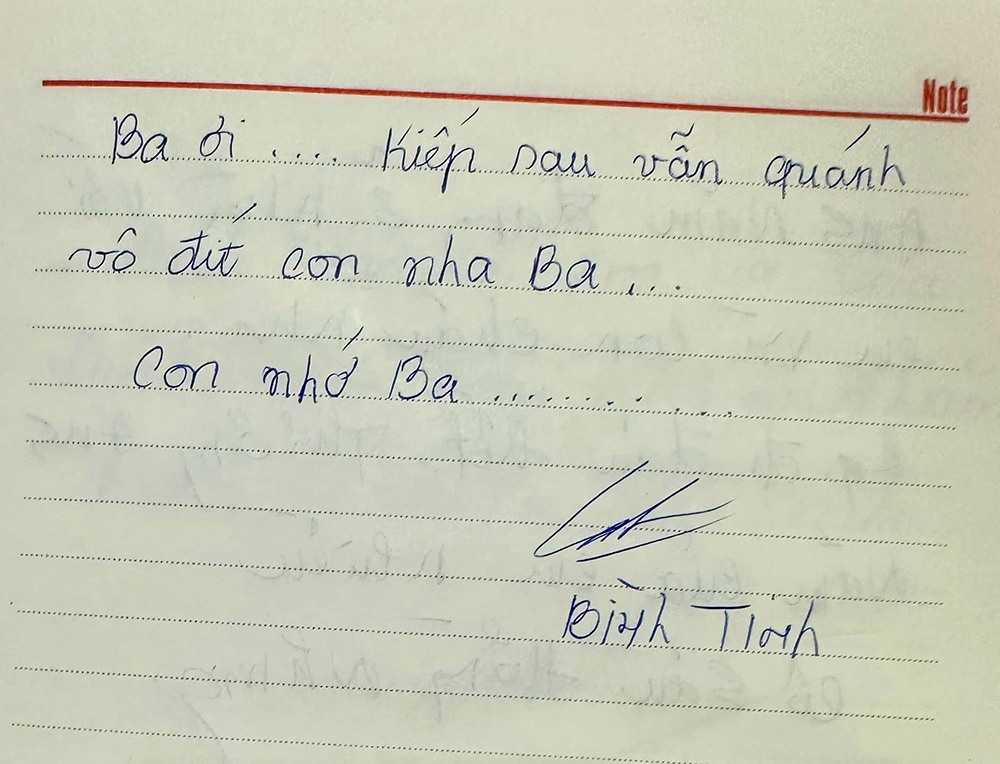 Note
Ba ơi .... Kiếp sau vẫn quánh
vô đít con nha Ba ....
Con nhớ Ba ............
Bình Tinh